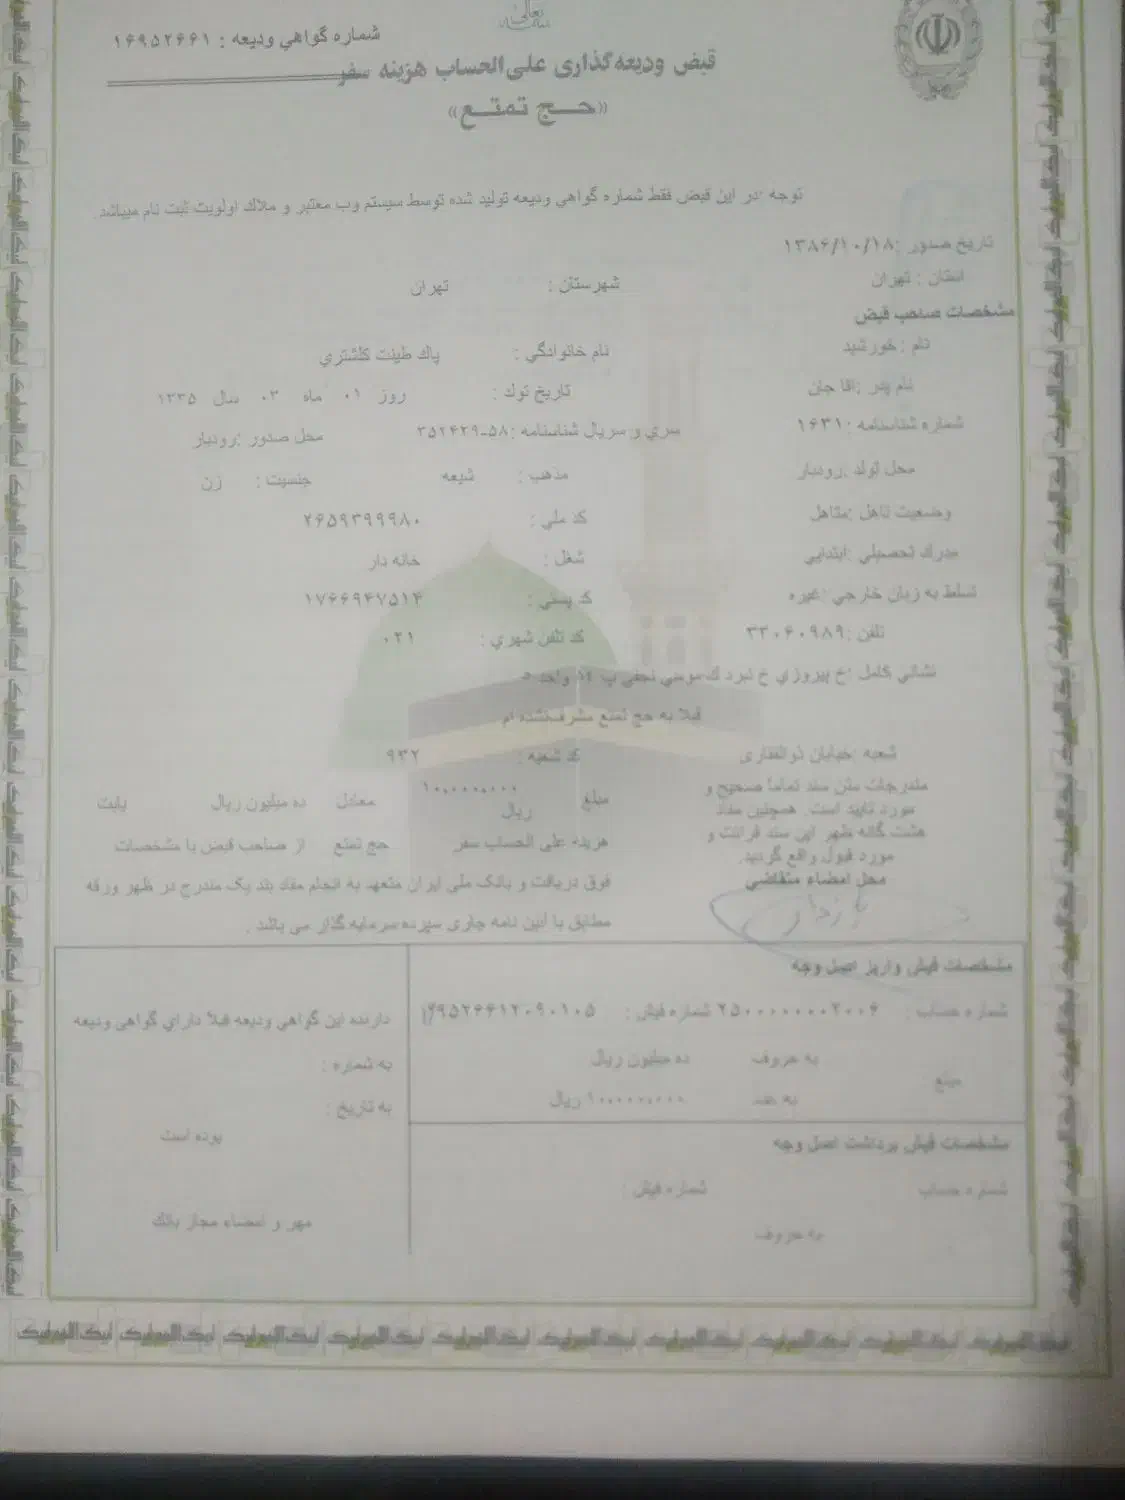 بسمه تعالی
شماره گواهي وديعه : ۱۶۹۵۲۶۶۱
قبض وديعه گذاری علی الحساب هزينه سفر
«حــج تمتــع»
توجه :در اين قبض فقط شماره گواهي وديعه توليد شده توسط سيستم وب معتبر و ملاك اولويت ثبت نام ميباشد.
تاريخ صدور :۱۳۸۶/۱۰/۱۸
استان : تهران شهرستان : تهران
مشخصات صاحب قبض
نام : خورشيد نام خانوادگي : پاك طينت كلشتري
نام پدر :اقا جان تاريخ تولد : روز ۰۱ ماه ۰۳ سال ۱۳۳۵
شماره شناسنامه :۱۶۳۱ سري و سريال شناسنامه :۵۸-۳۵۲۶۲۹ محل صدور :رودبار
محل تولد :رودبار مذهب : شيعه جنسيت : زن
وضعيت تاهل :متاهل كد ملي : ۲۶۵۹۳۹۹۹۸۰
مدرك تحصيلي :ابتدايي شغل : خانه دار
تسلط به زبان خارجي :غيره كد پستي : ۱۷۶۶۹۴۷۵۱۴
تلفن :۳۳۰۶۰۹۸۹ كد تلفن شهري : ۰۲۱
نشاني كامل :خ پيروزي خ نبرد ك موسي نجفي پ واحد ۵
قبلا به حج تمتع مشرف نشده ام
شعبه :خيابان ذوالفقاری كد شعبه : ۹۳۲
مندرجات متن سند تماماً صحيح و
مورد تاييد است. همچنين مفاد
هشت گانه ظهر اين سند قرائت و
مورد قبول واقع گرديد.
محل امضاء متقاضي
مبلغ ۱۰,۰۰۰,۰۰۰ ريال معادل ده ميليون ريال بابت
هزينه علی الحساب سفر حج تمتع از صاحب قبض با مشخصات
فوق دريافت و بانک ملی ايران متعهد به انجام مفاد بند يک مندرج در ظهر ورقه
مطابق با آئين نامه جاری سپرده سرمايه گذار می باشد .
مشخصات فيش واريز اصل وجه
شماره حساب : ۲۵۰۰۰۰۰۰۰۰۲۰۰۶ شماره فيش : ۱۶۹۵۲۶۶۱۲۰۹۰۱۰۵
مبلغ به حروف ده ميليون ريال
به عدد ۱۰,۰۰۰,۰۰۰ ريال
مشخصات فيش برداشت اصل وجه
شماره حساب شماره فيش :
به حروف
دارنده اين گواهی وديعه قبلاً دارای گواهی وديعه
به شماره :
به تاريخ :
بوده است
مهر و امضاء مجاز بانك